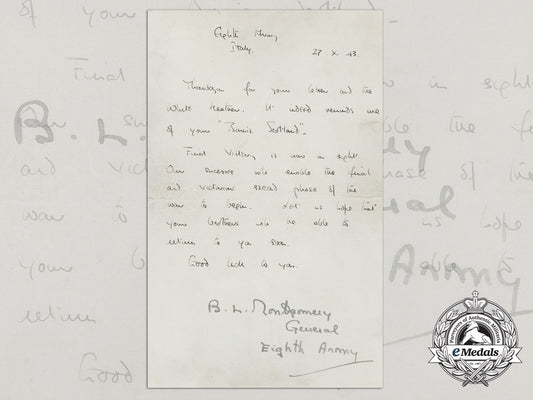 Eighth Army
Italy.
27 X. 43.
Thank you for your letter and the
White Heather. It indeed reminds me
of your "Bonnie Scotland".
Final Victory is now in sight
Our successes will enable the final
and victorious phase of the
war to begin. Let us hope that
your brothers will be able to
return to you soon.
Good luck to you.
B. L. Montgomery
General
Eighth Army
Purveyors of Authentic Militaria
eMedals